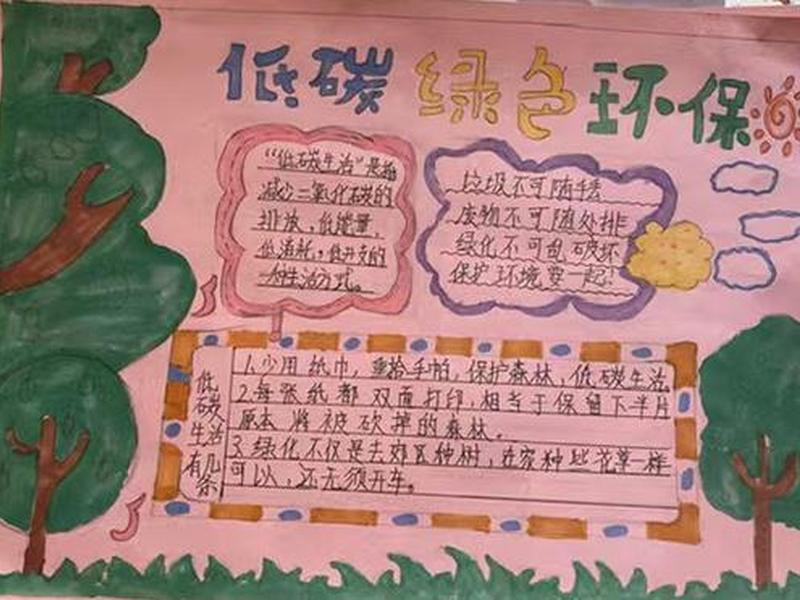 低碳 绿色 环保
“低碳生活”是指
减少二氧化碳的
排放，低能量、
低消耗，低开支的
生活方式。
垃圾不可随手丢
废物不可随处排
绿化不可乱破坏
保护环境要一起！
低碳生活有几条
1.少用纸巾，重拾手帕，保护森林，低碳生活
2.每张纸都双面打印，相当于保留下半片
原本将被砍掉的森林。
3.绿化不仅是去郊区种树，在家种些花草一样
可以，还无须开车。